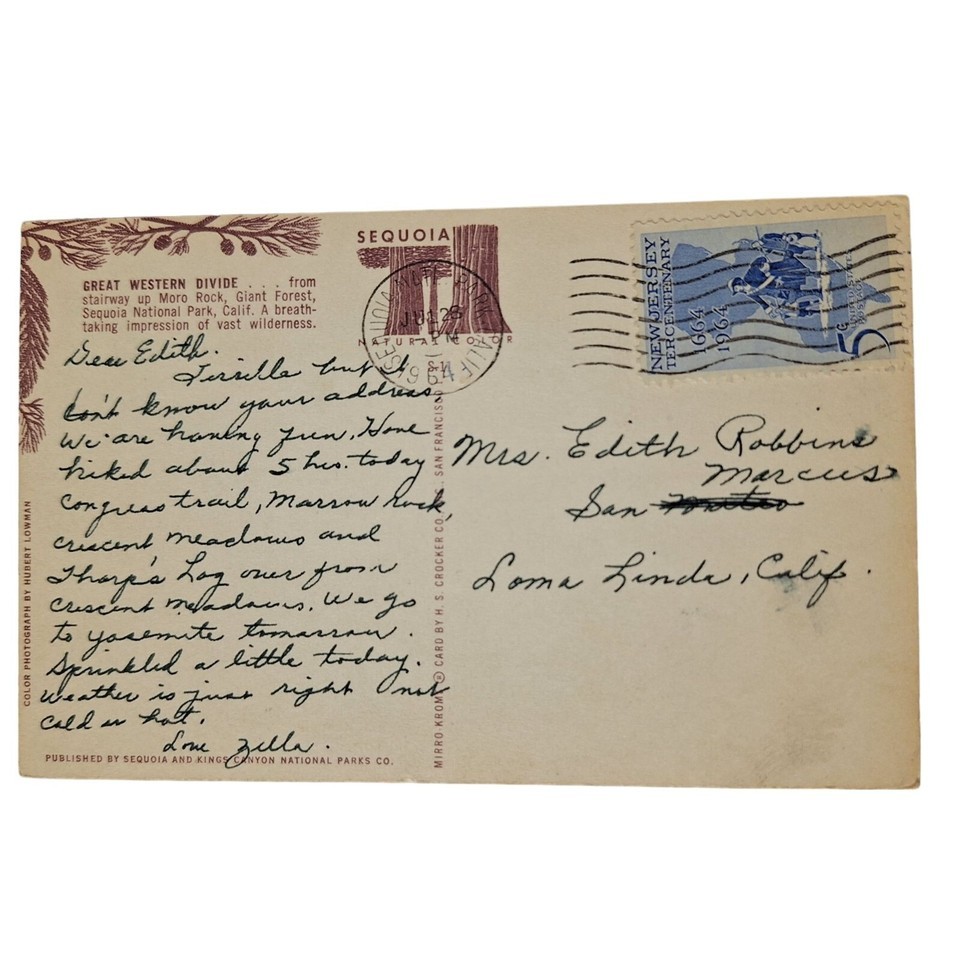 GREAT WESTERN DIVIDE . . . from
stairway up Moro Rock, Giant Forest,
Sequoia National Park, Calif. A breath-
taking impression of vast wilderness.
SEQUOIA
NATURAL COLOR
S-1
SEQUOIA NATL. PARK CALIF.
JUL 28
PM
1964
NEW JERSEY
TERCENTENARY
1664
1964
5c
UNITED STATES
POSTAGE
Dear Edith.
but I
don't know your address
We are having fun. Have
hiked about 5 hrs. today
Congress trail, Marrow rock,
crescent meadows and
Tharp's Log over from
crescent meadows. We go
to yosemite tomorrow.
Sprinkled a little today.
Weather is just right not
cold or hot.
Love Zella.
Mrs. Edith Robbins
Marcus
San Mateo
Loma Linda, Calif.
COLOR PHOTOGRAPH BY HUBERT LOWMAN
MIRRO-KROME® CARD BY H. S. CROCKER CO., SAN FRANCISCO
PUBLISHED BY SEQUOIA AND KINGS CANYON NATIONAL PARKS CO.